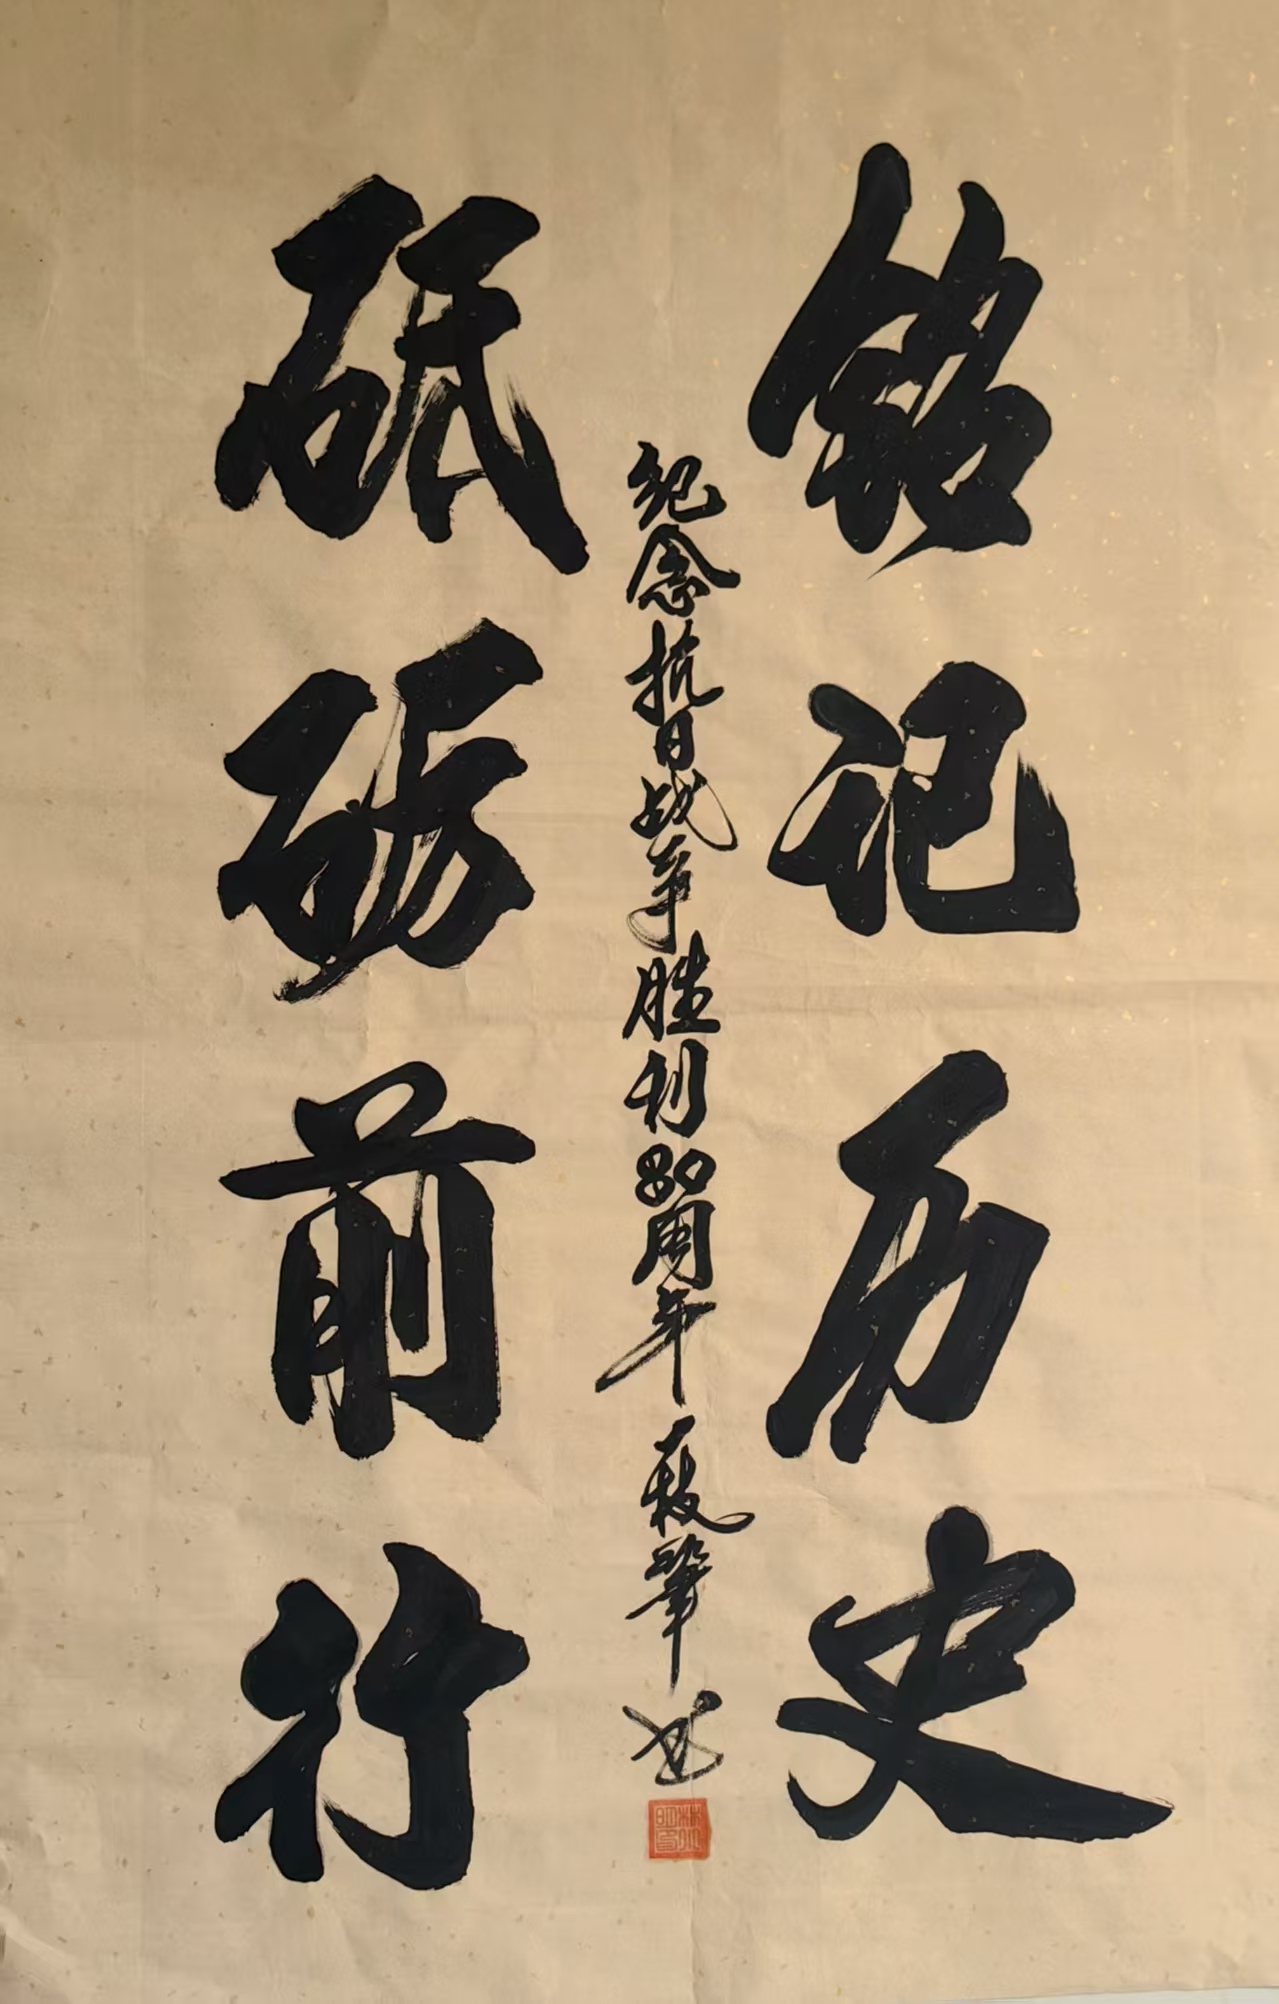 铭记历史
纪念抗日战争胜利80周年 一枝笔 书
砥砺前行